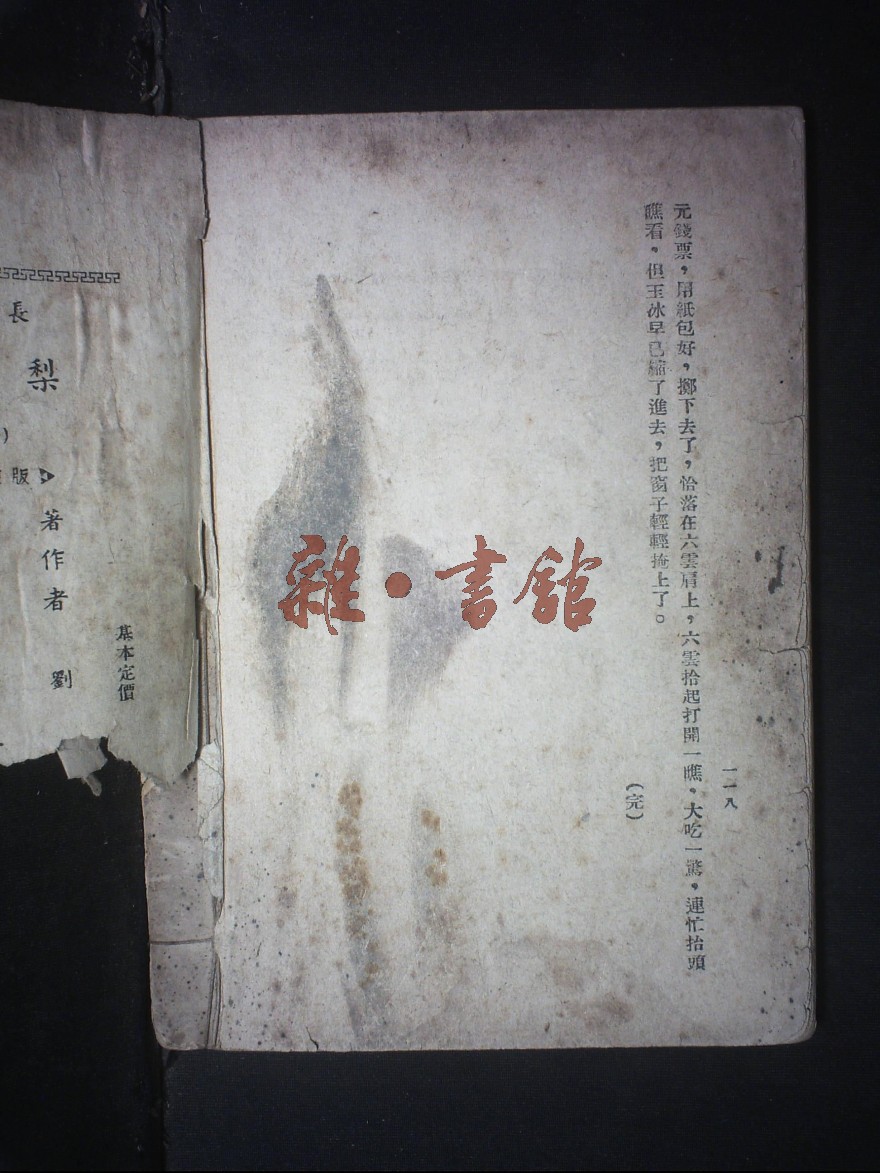 一一八
元錢票，用紙包好，擲下去了，恰落在六雲肩上，六雲拾起打開一瞧，大吃一驚，連忙抬頭
瞧看，但玉冰早已縮了進去，把窗子輕輕掩上了。
（完）
雜·書舘
基本定價
著作者 劉
版
)
梨
長